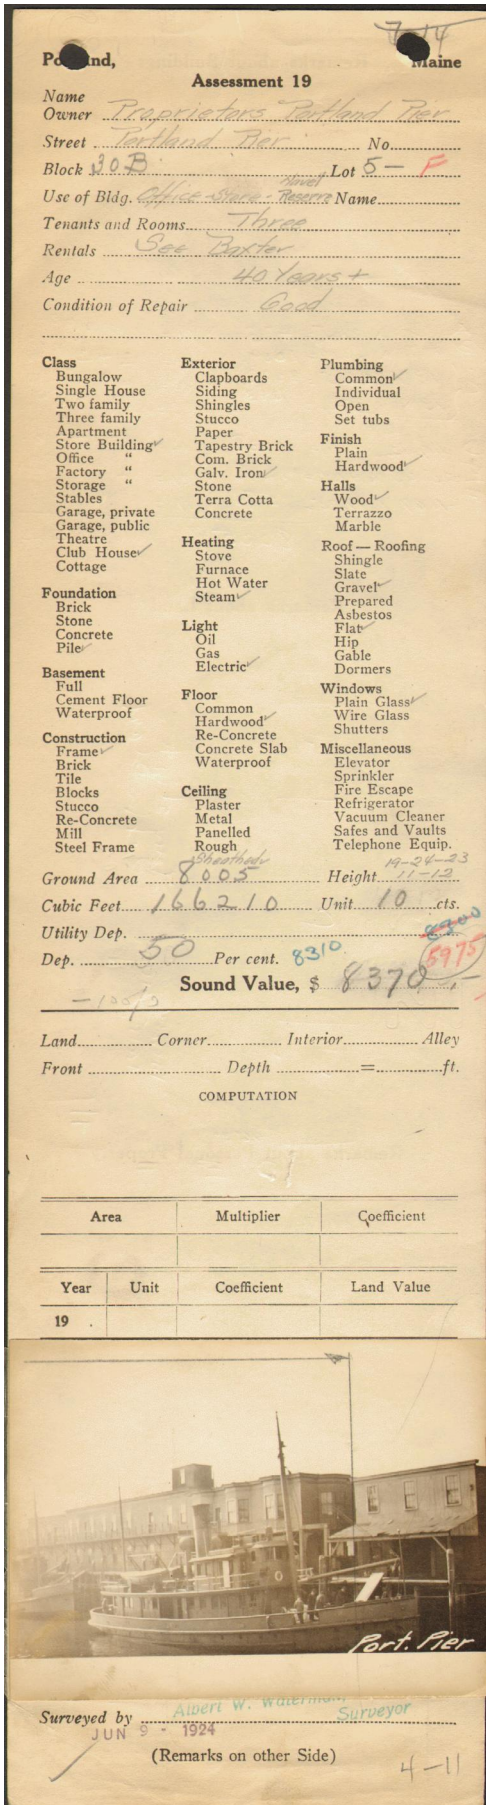 7-14
Portland, Maine
Assessment 19
Name
Owner Proprietors Portland Pier
Street Portland Pier No.
Block 30B Lot 5- F
Naval
Use of Bldg. Office-Store-Reserve Name
Tenants and Rooms Three
Rentals See Baxter
Age 40 Years +
Condition of Repair Good
Class
Bungalow
Single House
Two family
Three family
Apartment
Store Building ✓
Office "
Factory "
Storage "
Stables
Garage, private
Garage, public
Theatre
Club House ✓
Cottage
Foundation
Brick
Stone
Concrete
Pile ✓
Basement
Full
Cement Floor
Waterproof
Construction
Frame ✓
Brick
Tile
Blocks
Stucco
Re-Concrete
Mill
Steel Frame
Exterior
Clapboards
Siding
Shingles
Stucco
Paper
Tapestry Brick
Com. Brick
Galv. Iron ✓
Stone
Terra Cotta
Concrete
Heating
Stove
Furnace
Hot Water
Steam ✓
Light
Oil
Gas
Electric ✓
Floor
Common
Hardwood ✓
Re-Concrete
Concrete Slab
Waterproof
Ceiling
Plaster
Metal
Panelled
Rough
Sheathed ✓
Plumbing
Common ✓
Individual
Open
Set tubs
Finish
Plain
Hardwood ✓
Halls
Wood ✓
Terrazzo
Marble
Roof — Roofing
Shingle
Slate
Gravel ✓
Prepared
Asbestos
Flat ✓
Hip
Gable
Dormers
Windows
Plain Glass ✓
Wire Glass
Shutters
Miscellaneous
Elevator
Sprinkler
Fire Escape
Refrigerator
Vacuum Cleaner
Safes and Vaults
Telephone Equip.
19-24-23
Ground Area 8005 Height 11-12
Cubic Feet 166210 Unit 10 cts.
Utility Dep. 8300
Dep. 50 Per cent. 8310 5975
Sound Value, $ 8370.-
Land Corner Interior Alley
Front Depth = ft.
COMPUTATION
Area Multiplier Coefficient
Year Unit Coefficient Land Value
19 .
Port. Pier
Surveyed by Albert W. Waterman, Surveyor
JUN 9 - 1924
(Remarks on other Side)
4-11